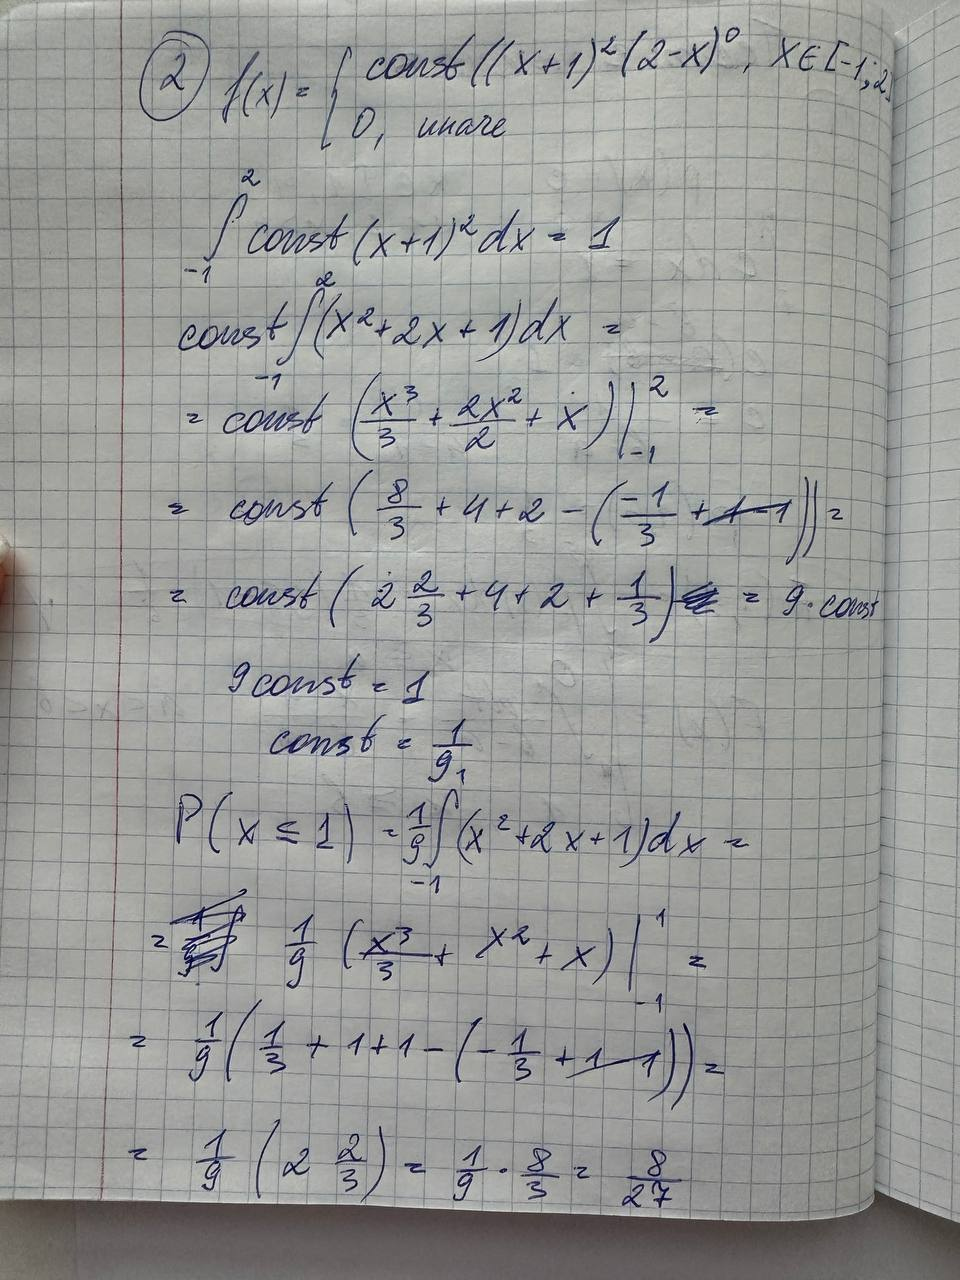 ② f(x) = { const((x+1)²(2-x)⁰, x∈[-1;2]
0, иначе
∫₋₁² const(x+1)²dx = 1
const ∫₋₁² (x²+2x+1)dx =
= const (x³/3 + 2x²/2 + x)|₋₁² =
= const (8/3 + 4 + 2 - (-1/3 + 1 - 1)) =
= const (2 2/3 + 4 + 2 + 1/3) = 9·const
9const = 1
const = 1/9
P(x ≤ 1) = 1/9 ∫₋₁¹ (x²+2x+1)dx =
= 1/9 (x³/3 + x² + x)|₋₁¹ =
= 1/9 (1/3 + 1+1 - (-1/3 + 1 - 1)) =
= 1/9 (2 2/3) = 1/9 · 8/3 = 8/27